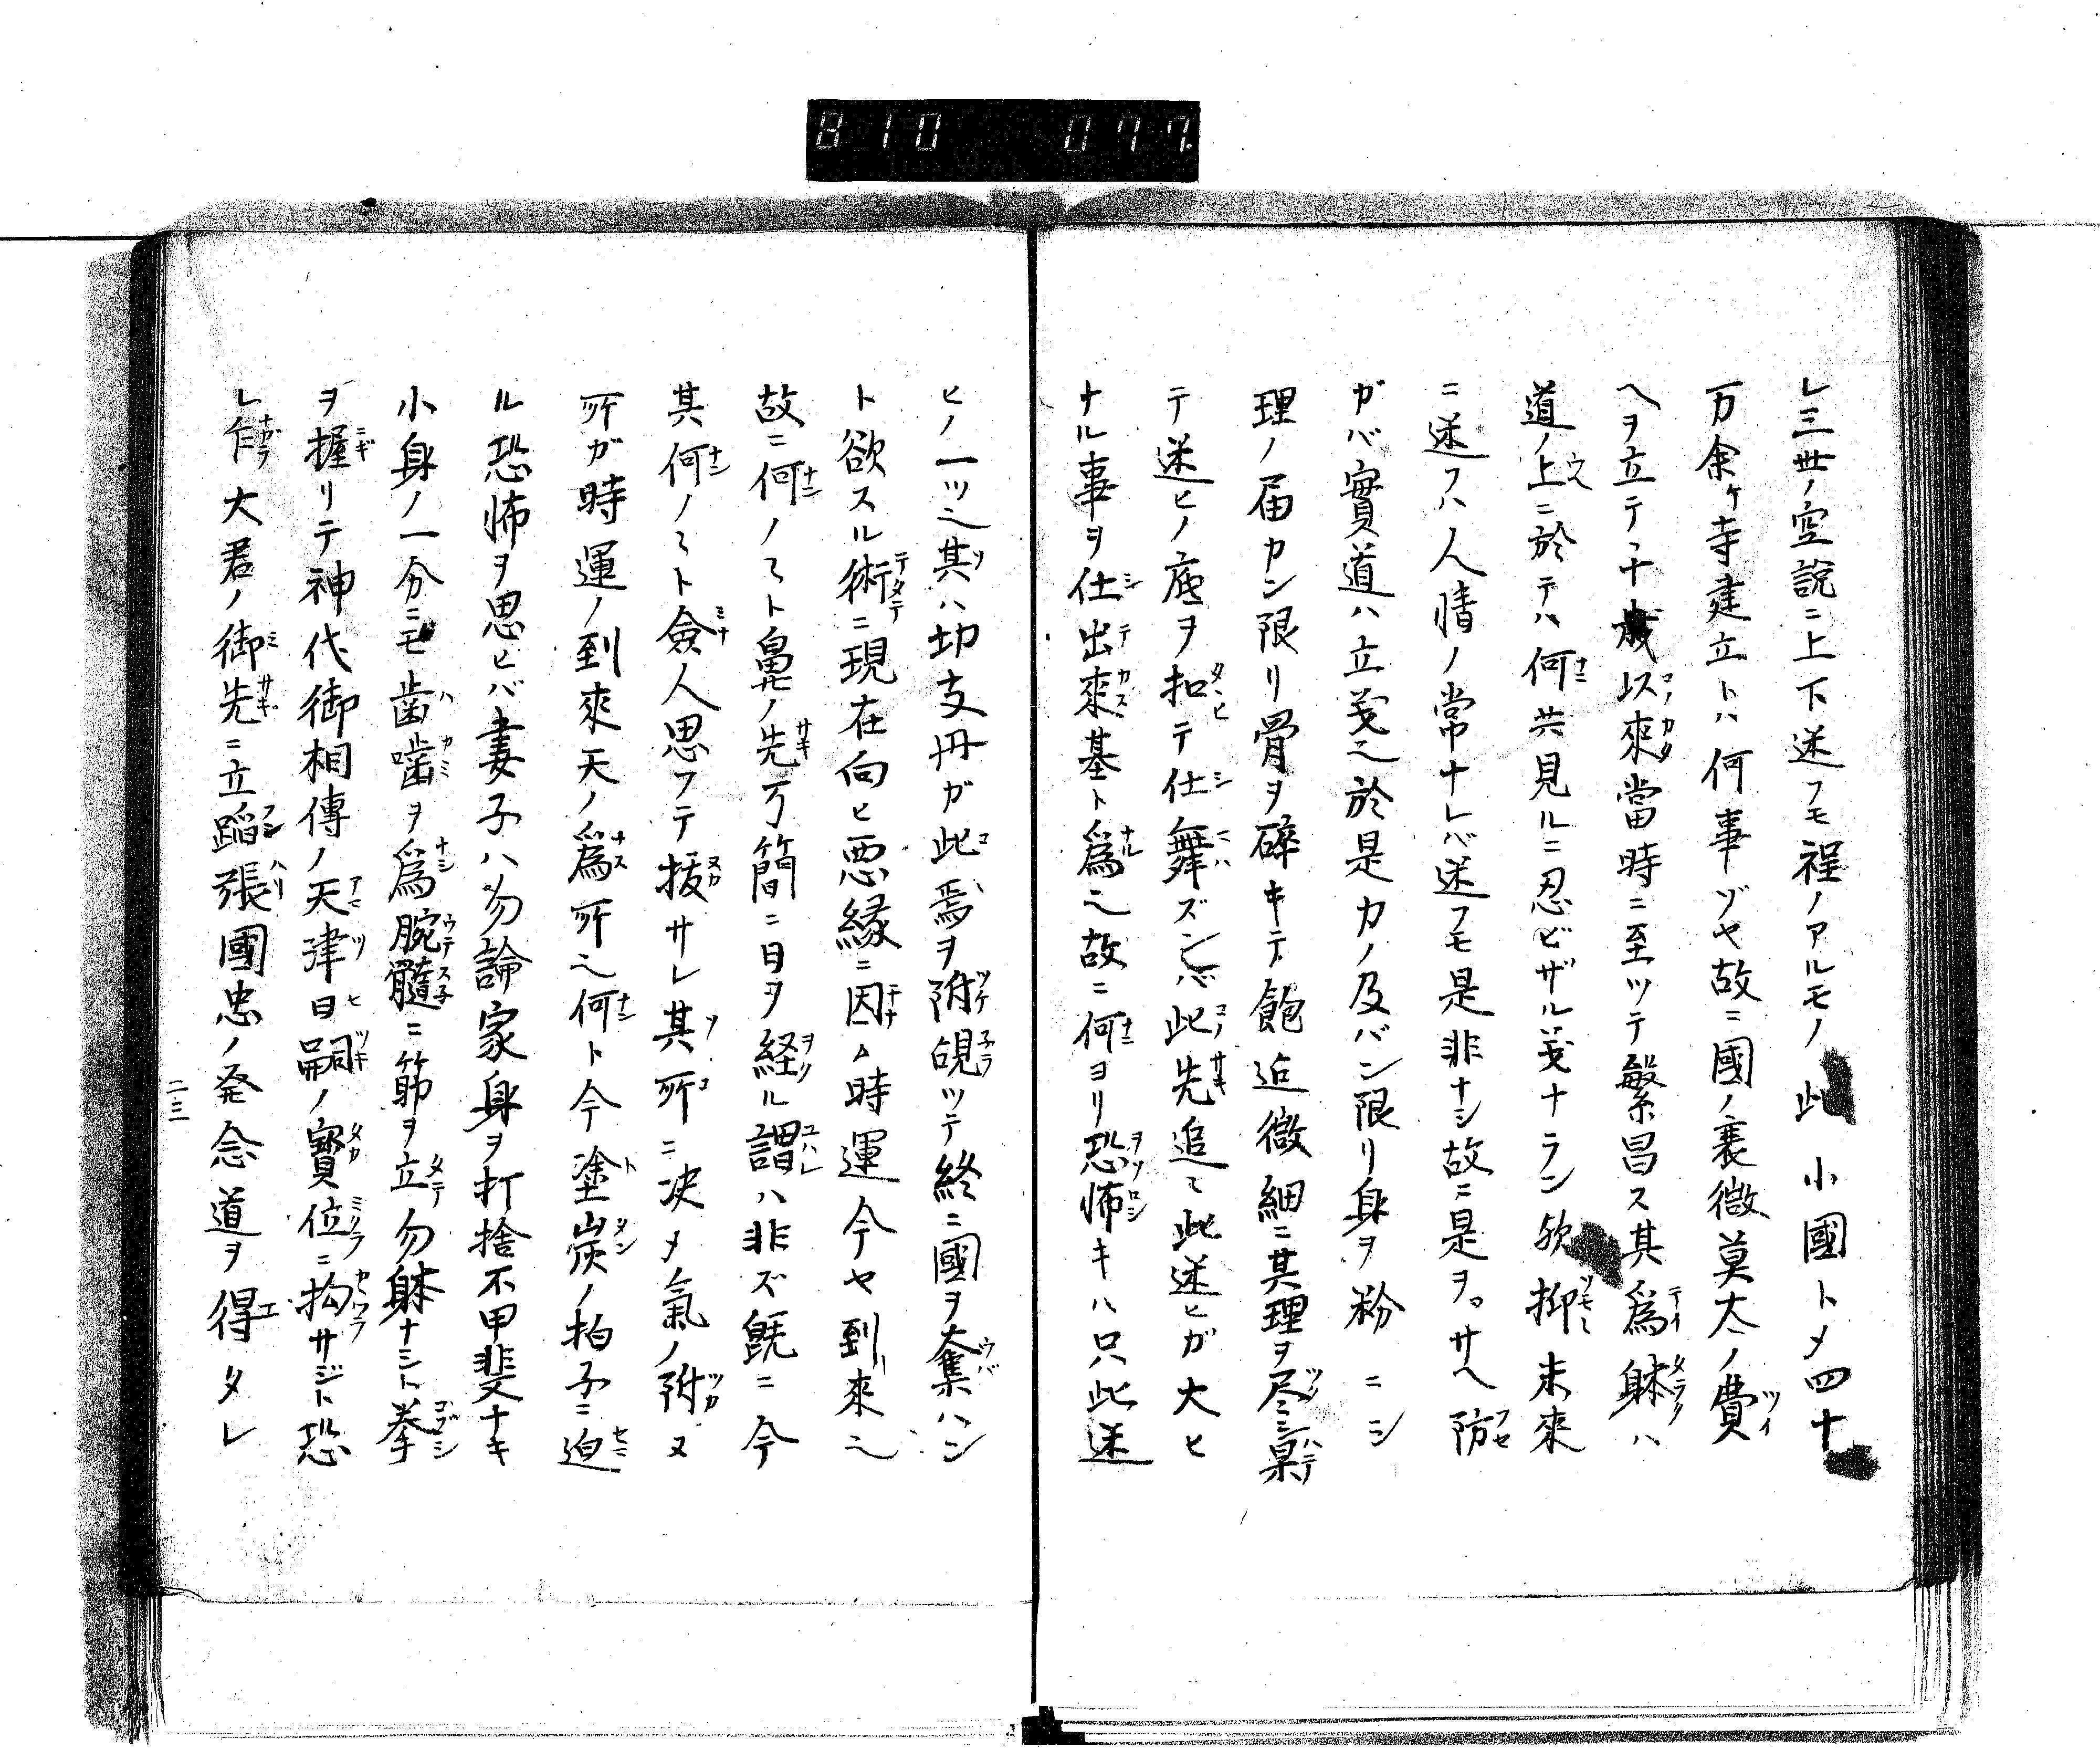 810 077.
レ三世ノ空説ニ上下迷フモ程ノアルモノ此小國トメ四十
万余ヶ寺建立トハ何事ヅヤ故ニ國ノ衰微莫大ノ費
ヘヲ立テ千歳以來當時ニ至ツテ繁昌ス其為躰ハ
道ノ上ニ於テハ何共見ルニ忍ビザル義ナラン欤抑未來
ニ迷フハ人情ノ常ナレバ迷フモ是非ナシ故ニ是ヲ。サヘ防
ガバ實道ハ立義之於是力ノ及バン限リ身ヲ粉ニシ
理ノ届カン限リ骨ヲ碎キテ飽迠微細ニ其理ヲ尽シ菓
テ迷ヒノ塵ヲ扣テ仕舞ズンバ此先追〻此迷ヒガ大ヒ
ナル事ヲ仕出來基ト為之故ニ何ヨリ恐怖キハ只此迷
ヒノ一ツ之其ハ切支丹ガ此焉ヲ附覘ツテ終ニ國ヲ奪ハン
ト欲スル術ニ現在向ヒ悪縁ニ因ム時運今ヤ到來之
故ニ何ノ〻ト鼻ノ先丂簡ニ日ヲ経ル謂ハ非ズ既ニ今
其何ノ〻ト僉人思フテ拔サレ其所ニ决メノ氣ノ附ヌ
所ガ時運ノ到來天ノ為所之何ト今塗炭ノ拍子ニ迫
ル恐怖ヲ思ヒバ妻子ハ勿論家身ヲ打捨不甲斐ナキ
小身ノ一分ニモ歯噛ヲ為腕髓ニ筋ヲ立勿躰ナシト拳
ヲ握リテ神代御相傳ノ天津日嗣ノ寳位ニ拘サジト恐
レ乍大君ノ御先ニ立蹈張國忠ノ発念道ヲ得タレ
二三